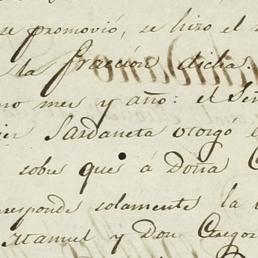 se promovió, se hizo el
la fracción dicha.
mo mes y año: el Señ
ier Sardaneta otorgó e
sobre que á Doña C
responde solamente la
Manuel y Don Gregor